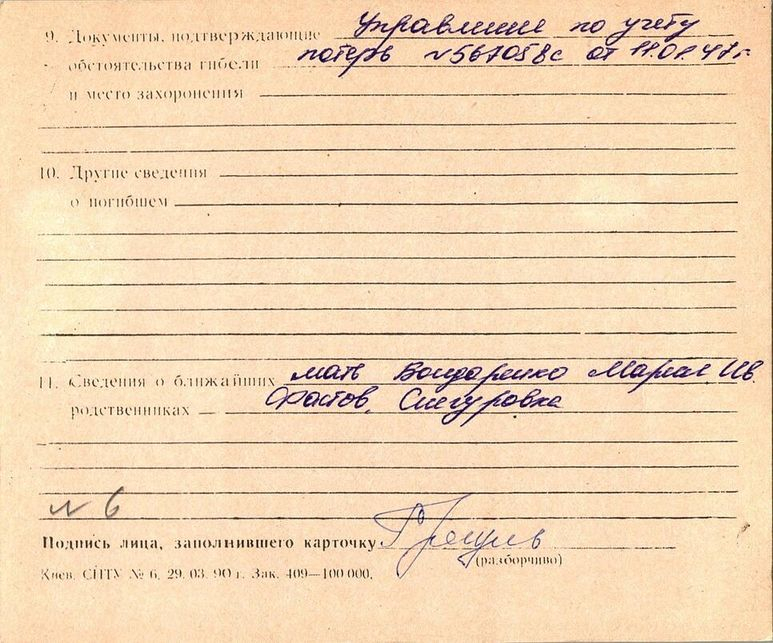 9. Документы, подтверждающие Управление по учету
обстоятельства гибели потерь №567058с от 11.01.47г.
и место захоронения
10. Другие сведения
о погибшем
11. Сведения о ближайших мать Бондаренко Мария Ив.
родственниках Фастов, Снегуровка
№ 6
Подпись лица, заполнившего карточку
(разборчиво)
Киев. СПТУ № 6. 29. 03. 90 г. Зак. 409—100 000.